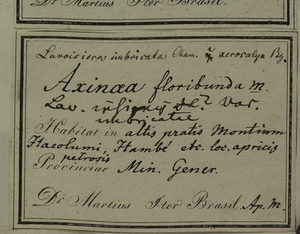 Dr Martius Iter Brasil.
Lavoisiera imbricata Cham. γ aerocalyx
Axinæa floribunda M.
Lav. insignis DC? Var.
imbricatae
Habitat in altis pratis Montium
Itacolumi, Itambé etc. loc. apricis
petrosis
Provinciae Min. Gener.
Dr Martius Iter Brasil Ap. M.